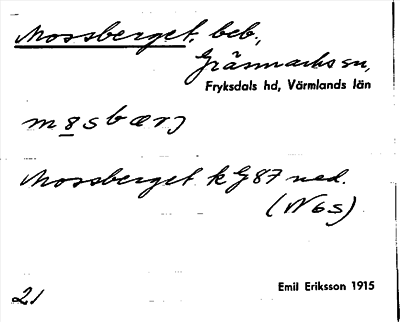 Mossberget, beb.,
Gräsmarks sn,
Fryksdals hd, Värmlands län
m8sbærj
Mossberget k G 87 ned.
(N 6 S)
21
Emil Eriksson 1915